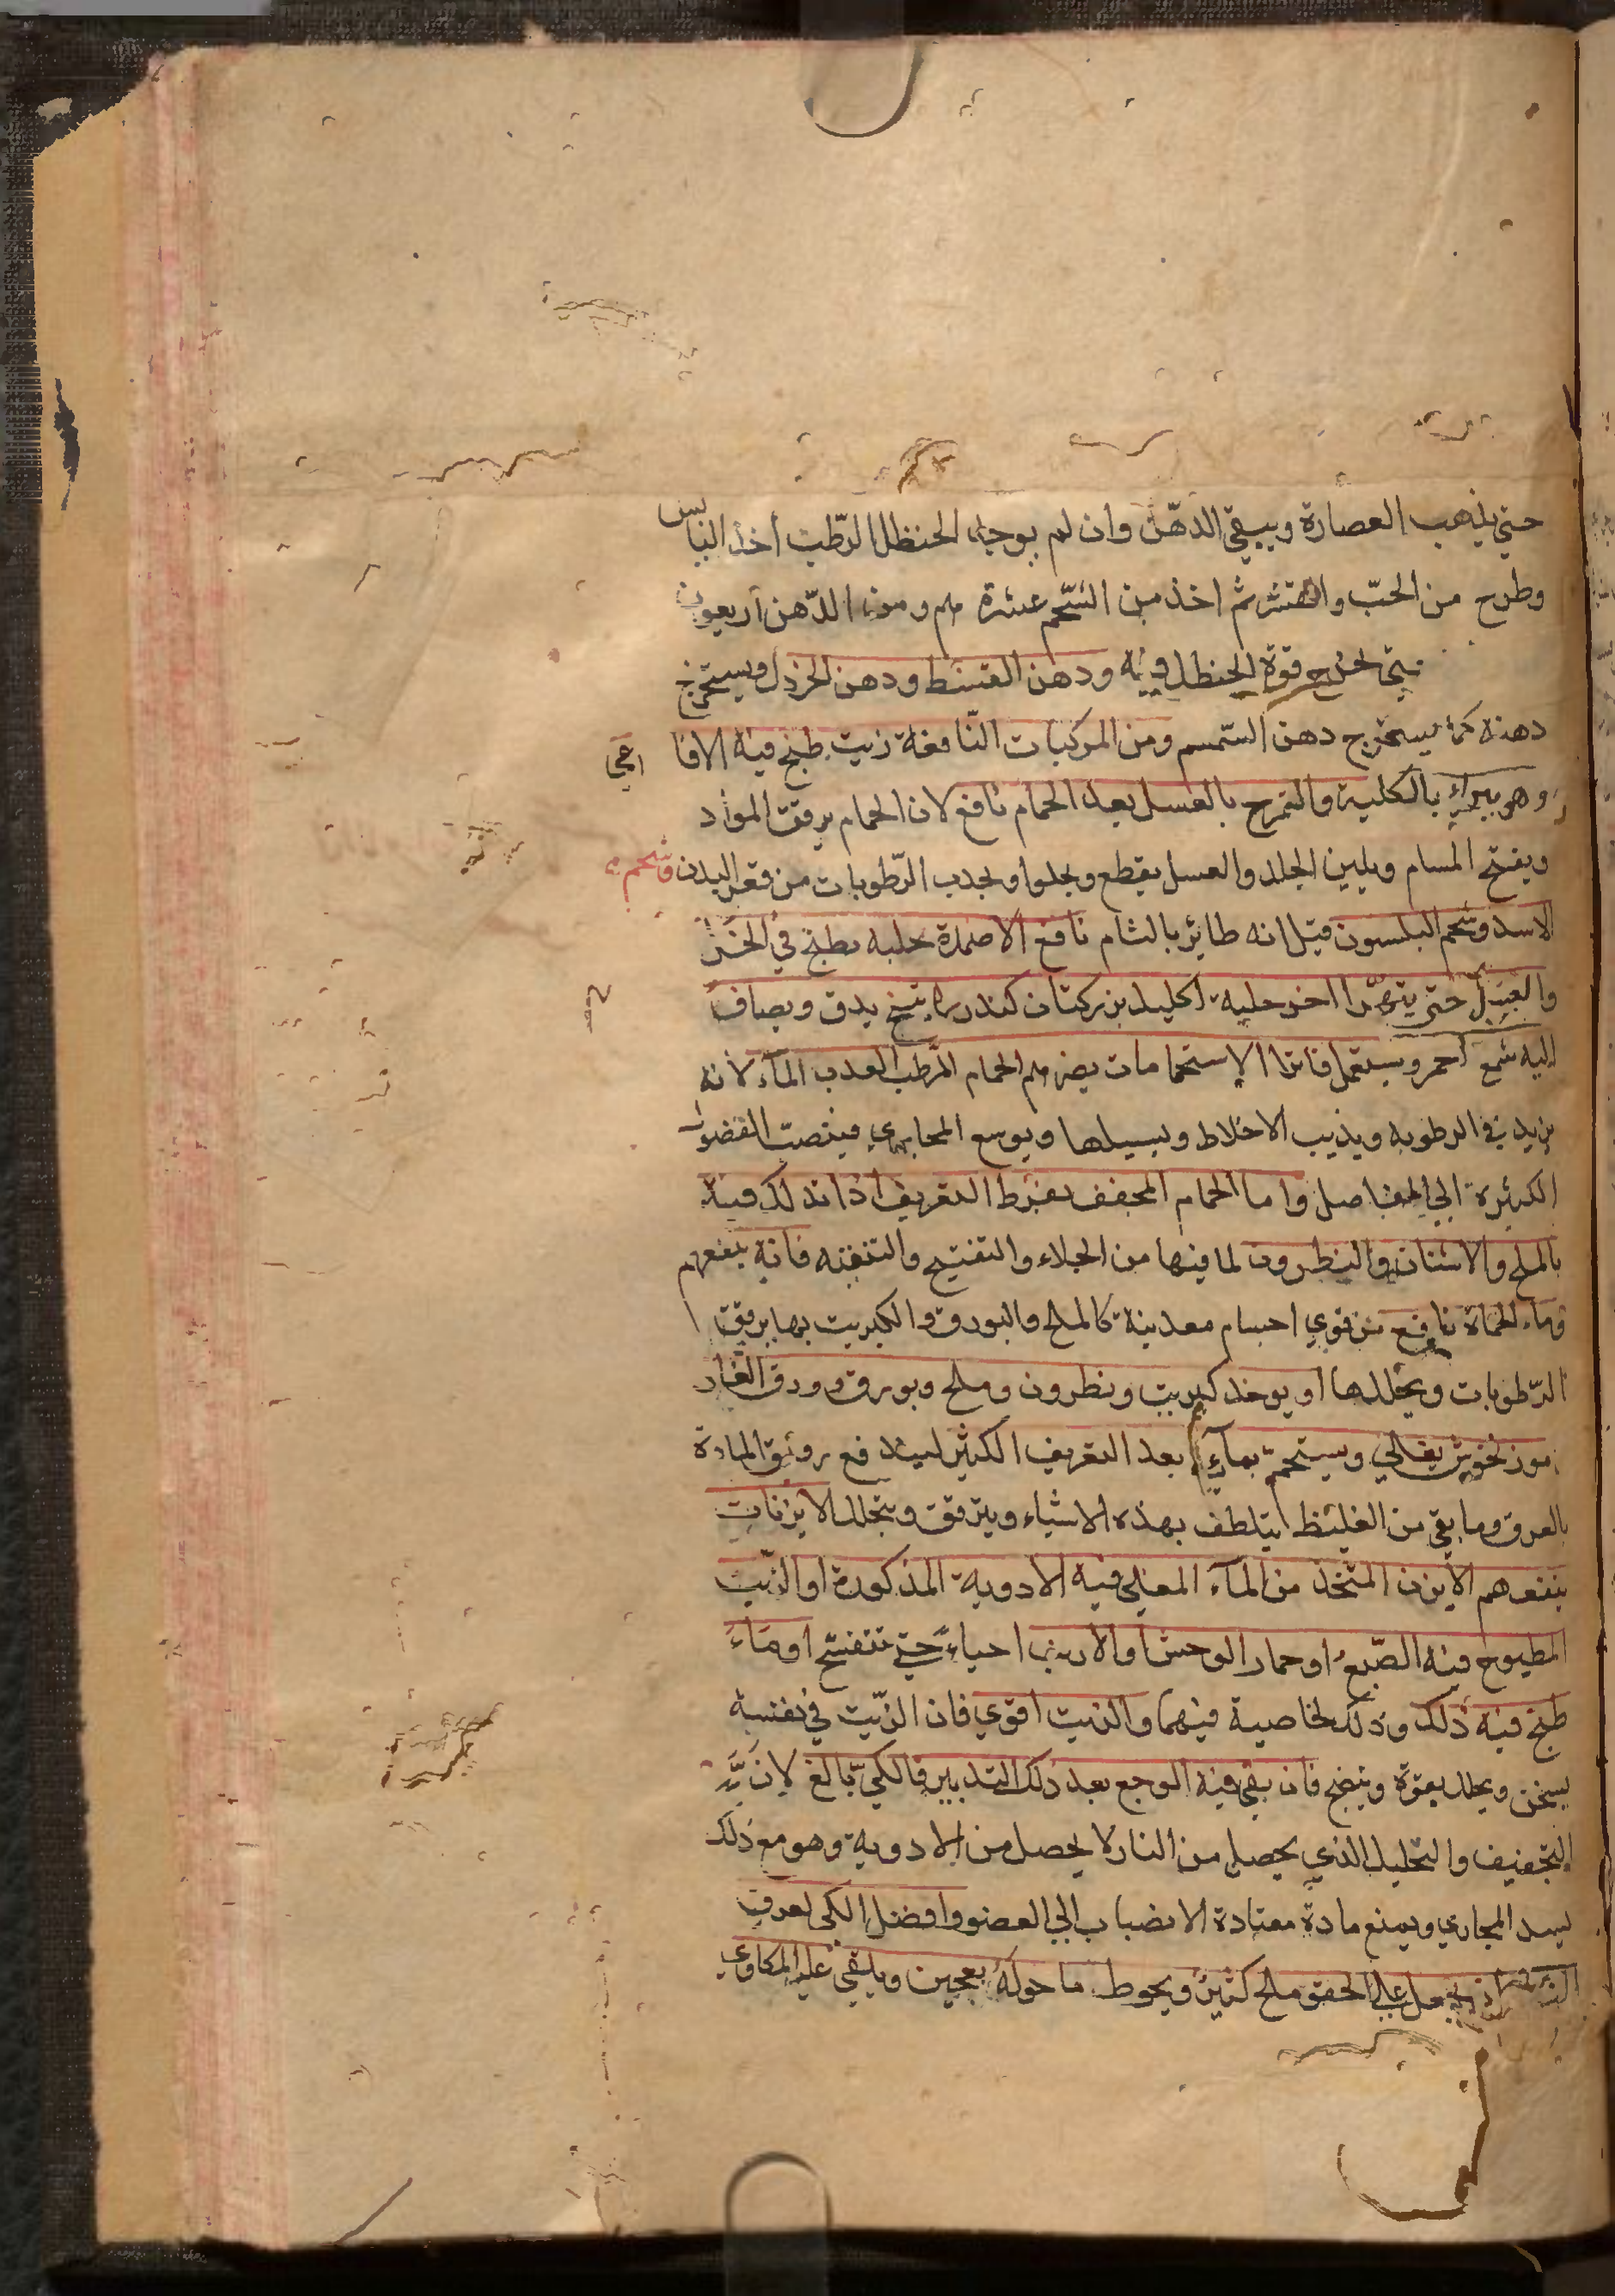 حتي يذهب العصارة ويبقي الدهن وان لم يوجد الحنظل الرطب اخذ اليابس
وطرح من الحب والقشر ثم اخذ من الشحم عشرة م ومن الدهن اربعون
حتي يخرج قوة الحنظل فيه ودهن القسط ودهن الخردل ويستخرج
دهنه كما يستخرج دهن السمسم ومن المركبات النافعة زيت طبخ فيه الافاعي
وهو يبراء بالكلية والتمرخ بالعسل بعد الحمام نافع لان الحمام يرقق المواد
ويفتح المسام ويلين الجلد والعسل يقطع ويجلوا ويجذب الرطوبات من قعر البدن وشحم
الاسد وشحم البلسون قيل انه طائر بالشام نافع الاضمدة حلبه يطبخ في الخل
والعسل حتي يتهرا اخر حلية اكليل بزركتان كندر يدق ويضاف
اليه شمع احمر ويستعمل فاترا الاستحمامات يضرهم الحمام المرطب العذب الماء لانه
يزيد في الرطوبه ويذيب الاخلاط ويسيلها ويوسع المجاري فينصب الفضول
الكثيرة الي المفاصل واما الحمام المجفف بفرط التعريف اذا تدلك فيه
بالملح والاشنان والنطرون لما فيها من الجلاء والتفتيح والتنقيه فانه ينفعهم
وماء الحماة نافع من قوي اجسام معدنية كالملح والبورق والكبريت بها يرقق
الرطوبات ويحللها او يوخذ كبريت ونطرون وملح وبورق وورق الغار
مرزنجوش يغلي ويستحم بماء بعد التعريف الكثير ليندفع رقيق المادة
بالعرق وما بقي من الغليظ يتلطف بهذه الاشياء ويترقق ويتحلل الابزنات
ينفعهم الابزن المتخذ من الماء المغلي فيه الادوية المذكورة او الزيت
المطبوخ فيه الضبع او حمار الوحش او الارنب احياء حتي تتفسخ او ماء
طبخ فيه ذلك وذلك لخاصية فيهما والزيت اقوي فان الزيت في نفسه
يسخن ويحلل بقوة وينضج فان بقي فيه الوجع بعد ذلك التدبير فالكي بالغ لان
التجفيف والتحليل الذي يحصل من النار لا يحصل من الادوية وهو مع ذلك
يسد المجاري ويمنع مادة معتادة الانصباب الي العضو وافضل الكي لعرق
النسا ان يجعل علي الحق ملح كثير ويحوط ما حوله بعجين ويلقي عليه المكاوي